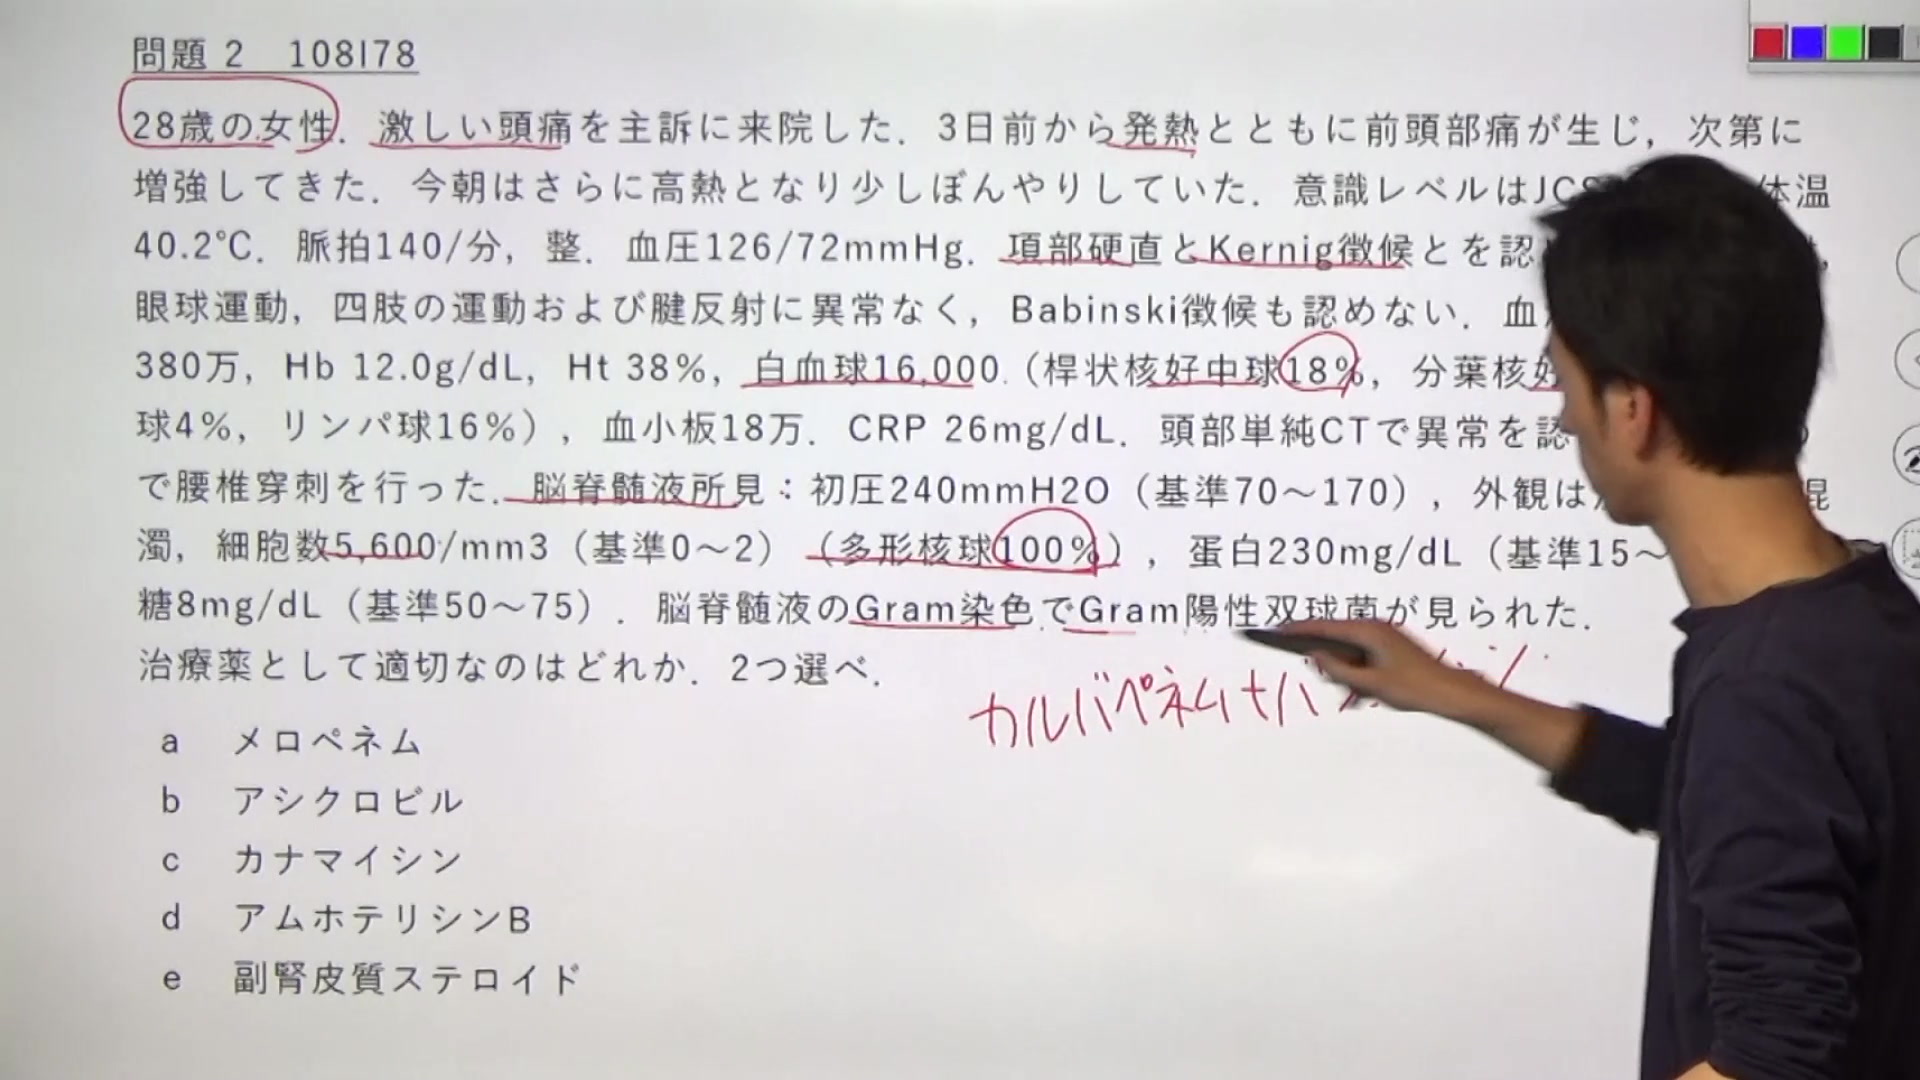 問題 2　108I78
28歳の女性．激しい頭痛を主訴に来院した．3日前から発熱とともに前頭部痛が生じ，次第に
増強してきた．今朝はさらに高熱となり少しぼんやりしていた．意識レベルはJCS 体温
40.2℃．脈拍140/分，整．血圧126/72mmHg．項部硬直とKernig徴候とを認
眼球運動，四肢の運動および腱反射に異常なく，Babinski徴候も認めない．血
380万，Hb 12.0g/dL，Ht 38%，白血球16,000（桿状核好中球18%，分葉核好
球4%，リンパ球16%），血小板18万．CRP 26mg/dL．頭部単純CTで異常を認
で腰椎穿刺を行った．脳脊髄液所見：初圧240mmH2O（基準70～170），外観は 混
濁，細胞数5,600/mm3（基準0～2）（多形核球100%），蛋白230mg/dL（基準15～
糖8mg/dL（基準50～75）．脳脊髄液のGram染色でGram陽性双球菌が見られた．
治療薬として適切なのはどれか．2つ選べ．
カルバペネム+バ
a　メロペネム
b　アシクロビル
c　カナマイシン
d　アムホテリシンB
e　副腎皮質ステロイド